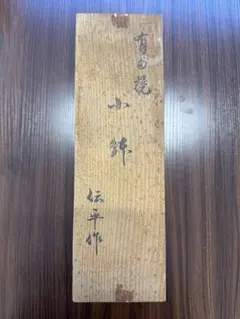 有田焼
小鉢
伝平作